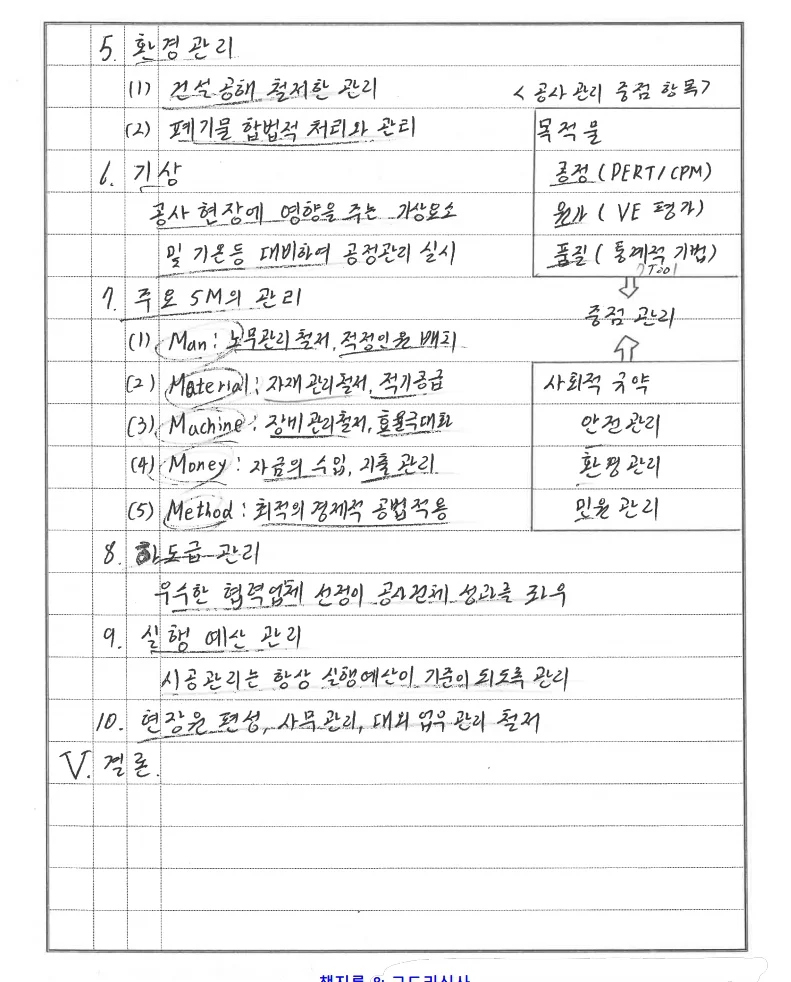 5. 환경관리
(1) 건설공해 철저한 관리
(2) 폐기물 합법적 처리와 관리
6. 기상
공사 현장에 영향을 주는 기상요소
및 기온등 대비하여 공정관리 실시
7. 주요 5M의 관리
(1) Man : 노무관리 철저, 적정인원 배치
(2) Material : 자재관리철저, 적기공급
(3) Machine : 장비관리철저, 효율극대화
(4) Money : 자금의 수입, 지출 관리
(5) Method : 최적의 경제적 공법적용
8. 하도급 관리
우수한 협력업체 선정이 공사전체 성과를 좌우
9. 실행 예산 관리
시공관리는 항상 실행예산이 기준이 되도록 관리
10. 현장원 편성, 사무관리, 대외 업무관리 철저
V. 결론.
<공사 관리 중점 항목>
목적물
공정 (PERT/CPM)
원가 (VE 평가)
품질 (통계적 기법)
Tool
중점 관리
사회적 규약
안전관리
환경관리
민원관리